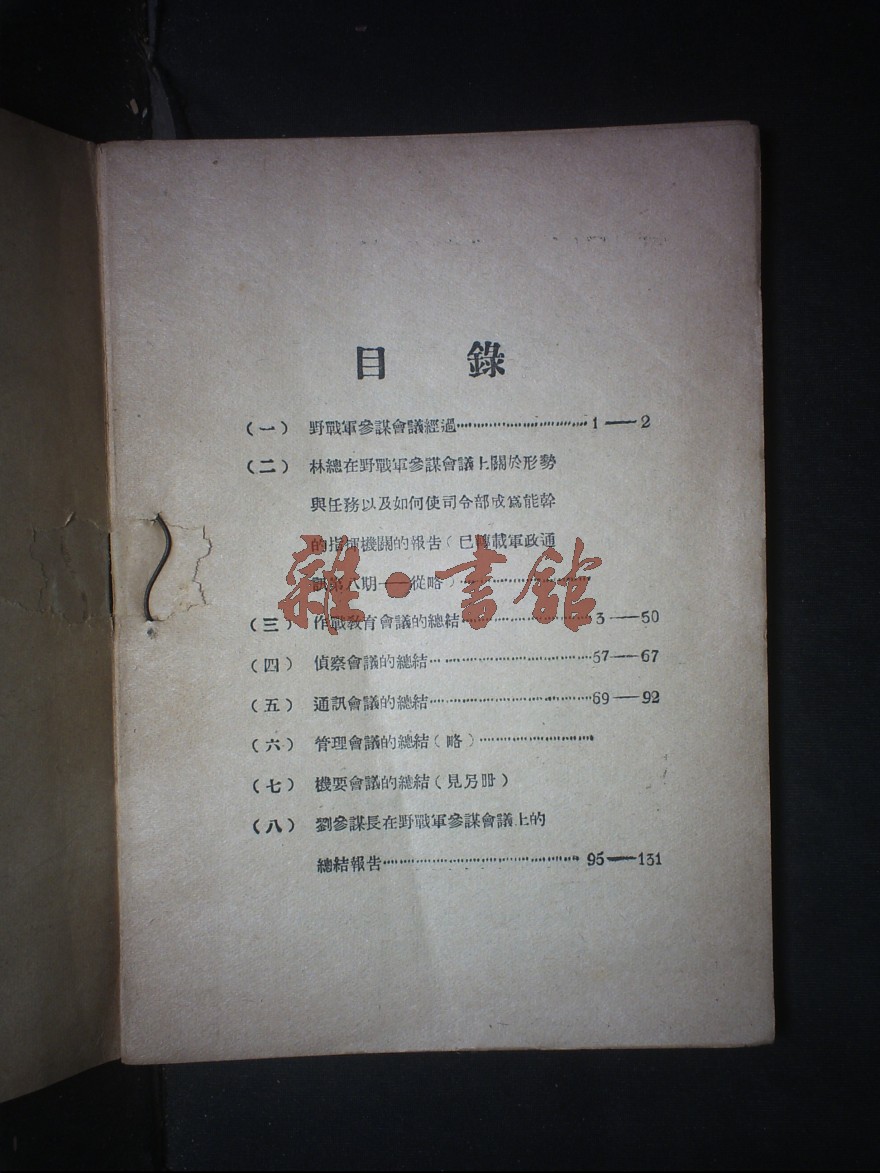 目 錄
（一） 野戰軍參謀會議經過⋯⋯⋯⋯⋯⋯⋯⋯1——2
（二） 林總在野戰軍參謀會議上關於形勢
與任務以及如何使司令部成爲能幹
的指揮機關的報告（已轉載軍政通
訊第八期——從略）⋯⋯⋯⋯⋯⋯
（三） 作戰教育會議的總結⋯⋯⋯⋯⋯⋯⋯⋯3——50
（四） 偵察會議的總結⋯⋯⋯⋯⋯⋯⋯⋯57——67
（五） 通訊會議的總結⋯⋯⋯⋯⋯⋯⋯⋯69——92
（六） 管理會議的總結（略）⋯⋯⋯⋯⋯⋯
（七） 機要會議的總結（見另冊）
（八） 劉參謀長在野戰軍參謀會議上的
總結報告⋯⋯⋯⋯⋯⋯⋯⋯⋯⋯95——131
雜·書館